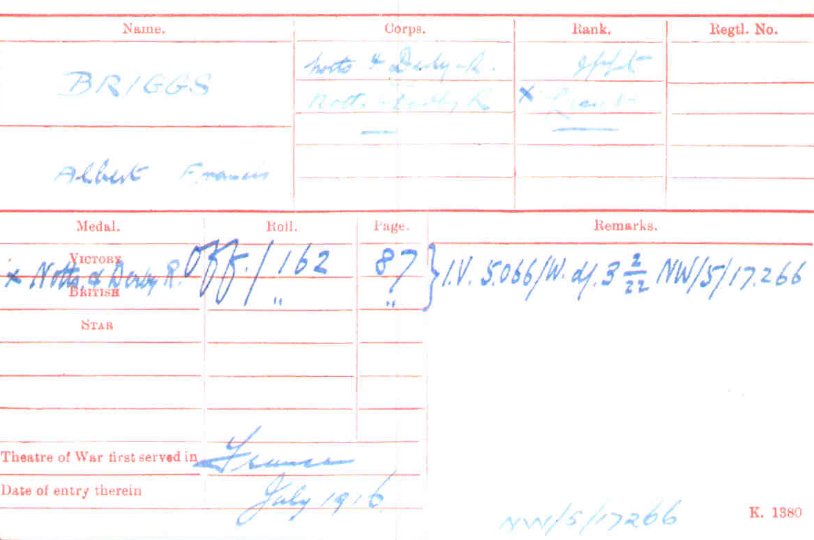 Name. Corps. Rank. Regtl. No.
BRIGGS
Notts & Derby R.
Notts & Derby R. x Lieut
Albert Francis
Medal. Roll. Page. Remarks.
VICTORY Off/162 87 } I.V. 5.066/W. d/. 3 2/22 NW/5/17.266
x Notts. & Derby R.
BRITISH " "
STAR
Theatre of War first served in France
Date of entry therein July 1916
NW/5/17266 K. 1380